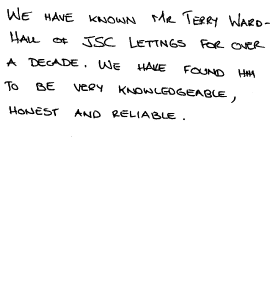 WE HAVE KNOWN MR TERRY WARD-
HALL OF JSC LETTINGS FOR OVER
A DECADE. WE HAVE FOUND HIM
TO BE VERY KNOWLEDGEABLE,
HONEST AND RELIABLE.